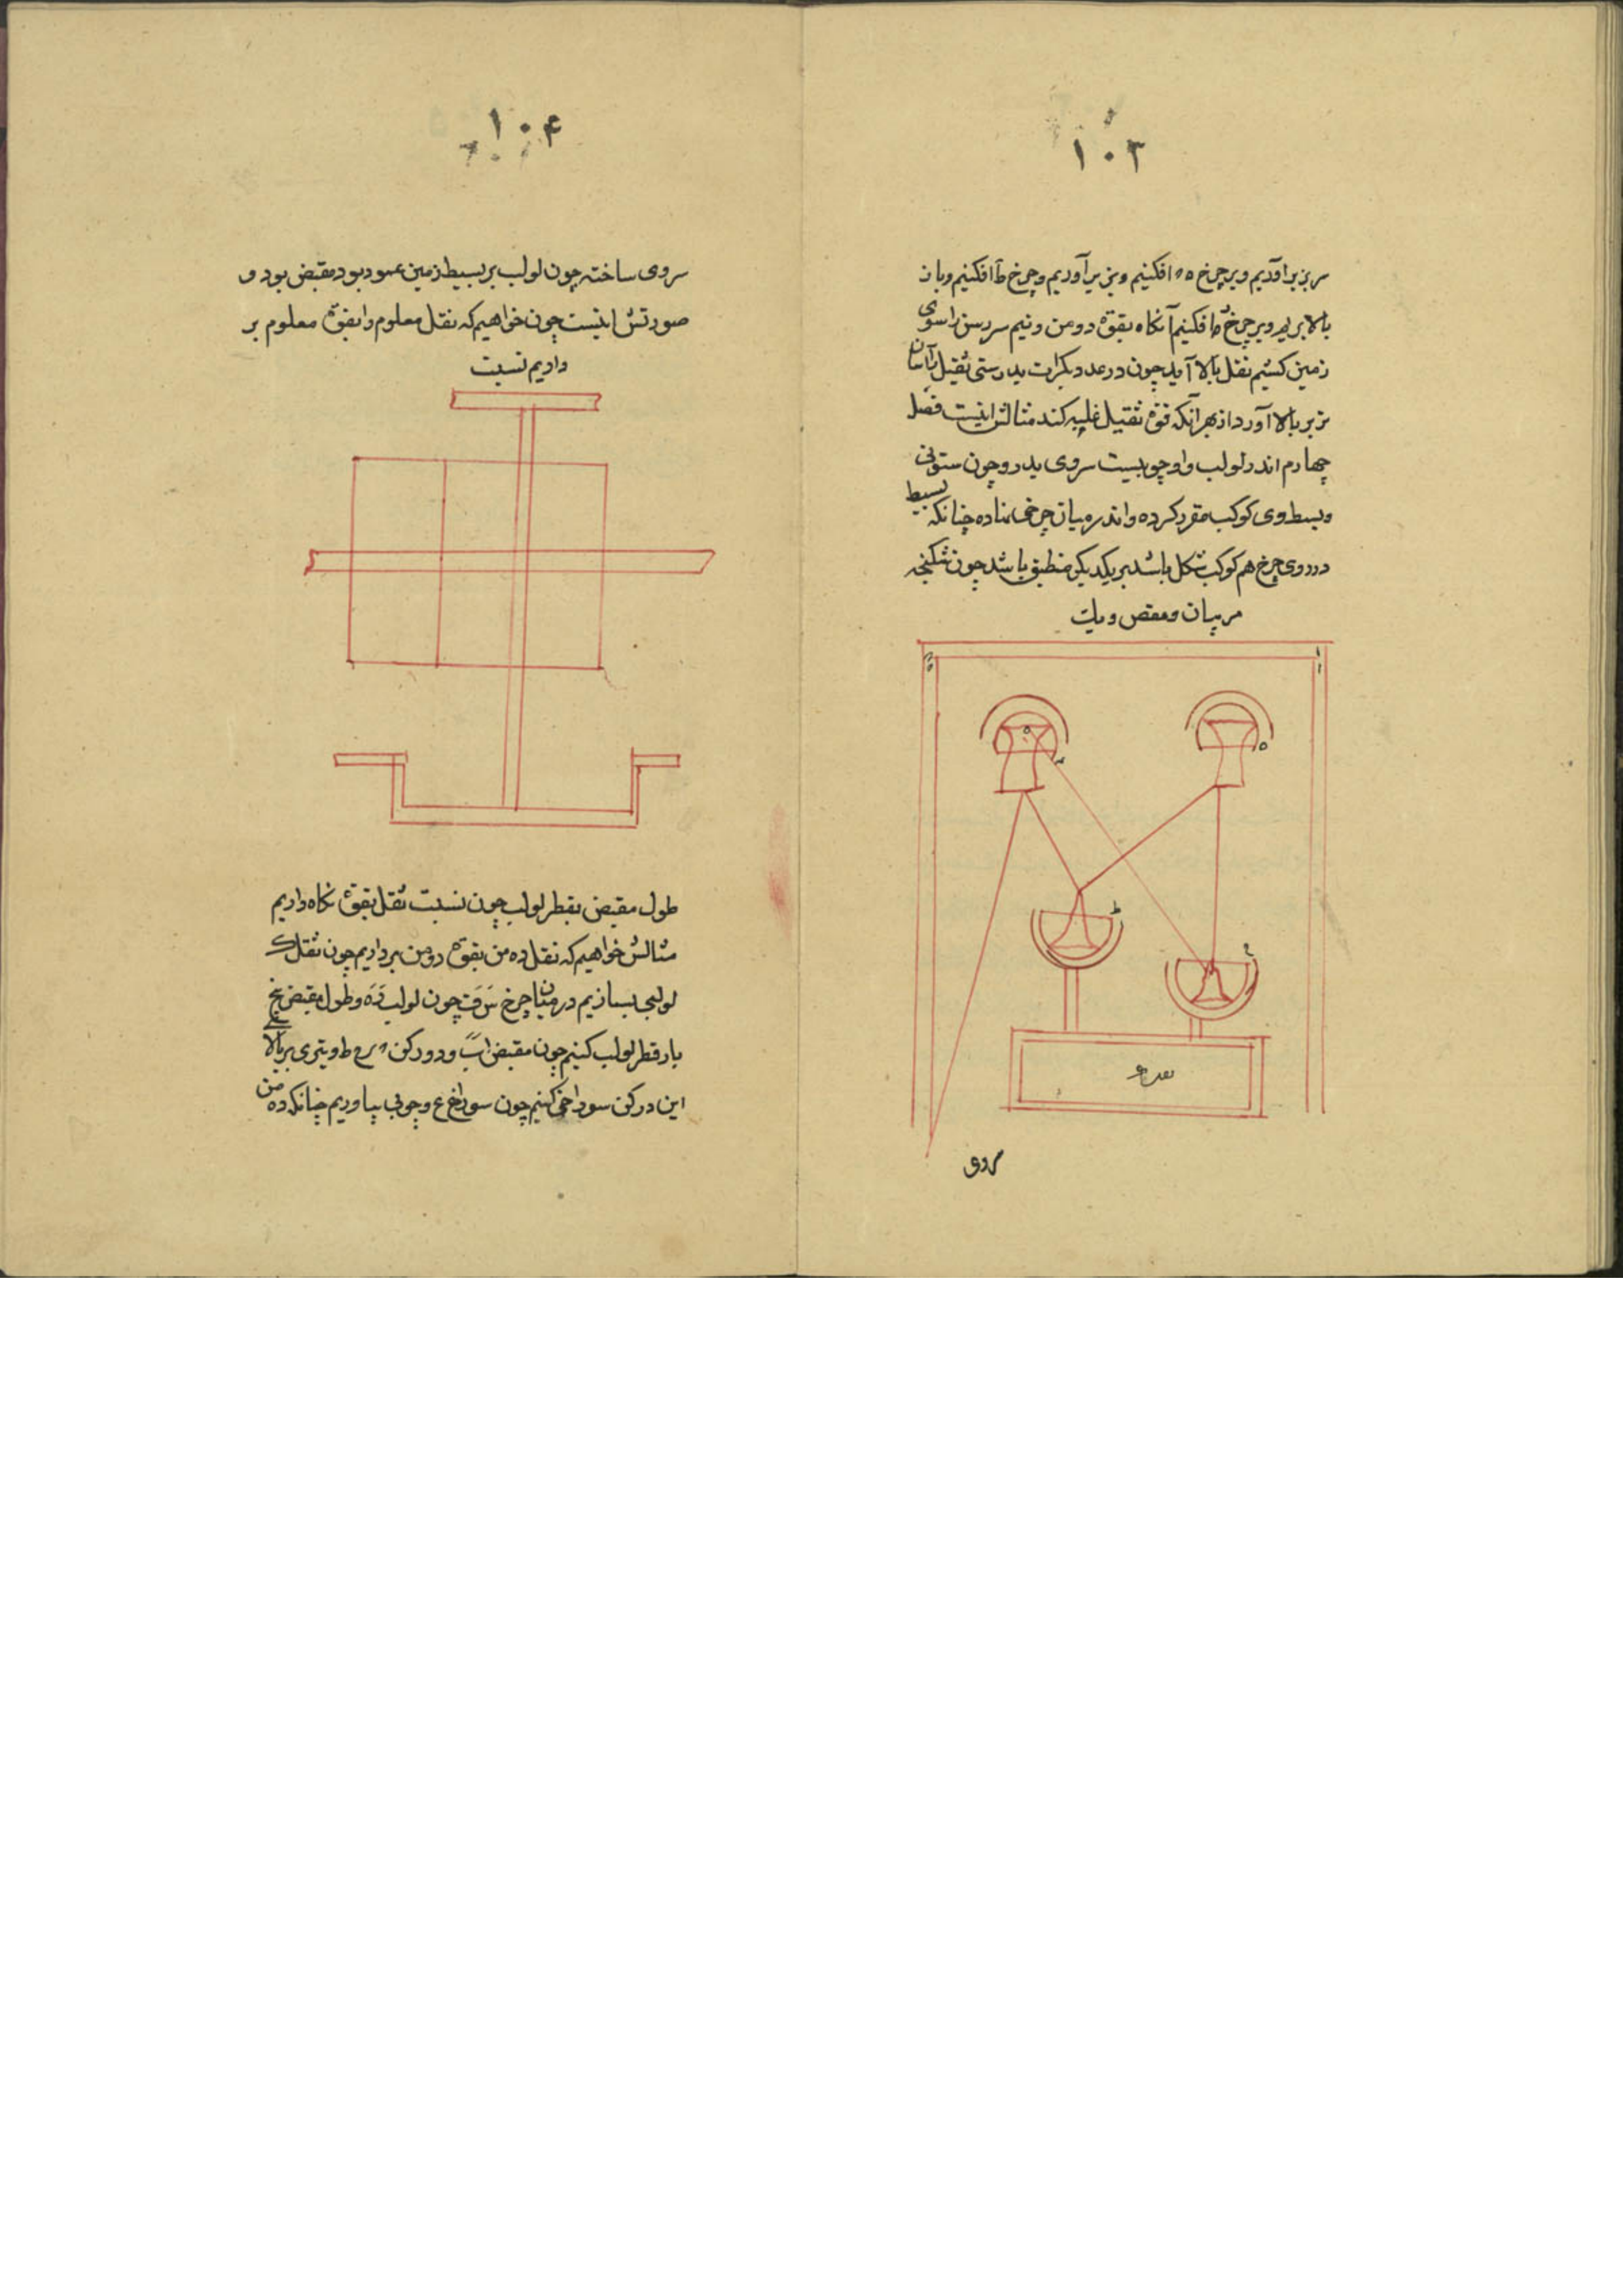 ۱۰۳
سر بزیر آوریم و بر چرخ ه افکنیم و بزیر آوریم و چرخ ط افکنیم و باز
بالا بریم و بر چرخ افکنیم آنکاه بقوّة دو من و نیم سر رسن را سوی
زمین کشیم ثقل بالا آید چون در عدد بکرات بدرستی ثقیل را آسان
تر بر بالا آورد از بهر آنکه قوّة ثقیل غلبه کند مثالش اینست فصل
چهارم اندر لولب و او چوبیست سروی بدر و چون ستونی
و بسط وی کوکب مقرر کرده و اندر میان چرخی نهاده چنانکه بسیط
درروی چرخ هم کوکب شکل باشد بر یکدیکر منطبق باشد چون شکنجه
سروی
۱۰۴
سروی ساخته چون لولب بر بسیط زمین عمود بود مقبض بود و
صورتش اینست چون خواهیم که ثقل معلوم را بقوّة معلوم بر
داریم نسبت
طول مقبض بقطر لولب چون نسبت ثقل بقوّة نکاه داریم
مثالش خواهیم که ثقل ده من بقوّة دو من برداریم چون ثقل ک
لولبی بسازیم در میان چرخ چون لولب و طول مقبض پنج
بار قطر لولب کنیم چون مقبض اب و دو رکن بر بالا
این در کن سوراخی کنیم چون سوراخ ع و چوبی بیاوریم چنانکه ده من